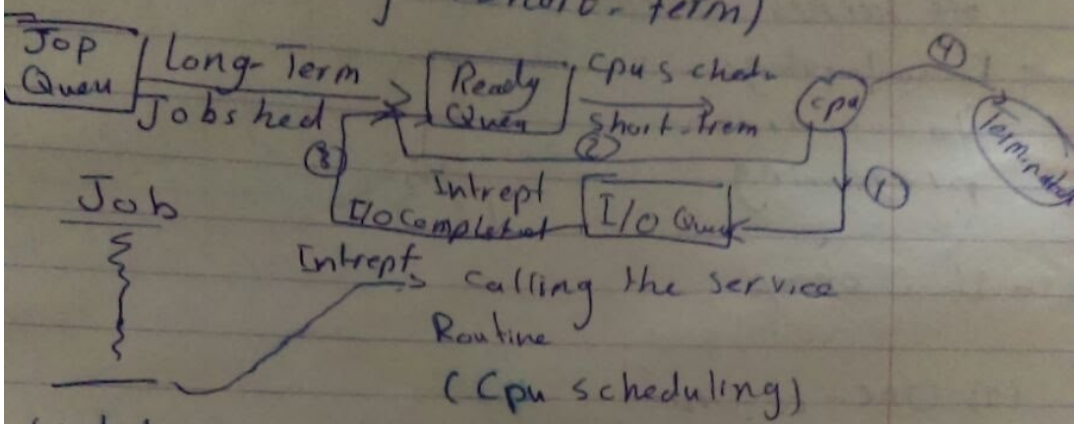 short-term)
Jop
Queu
Long-Term
Jobshed
Ready
Queu
cpu sched.
short-trem
cpu
4
Terminated
2
3
1
Intrept
I/O Completed
I/O Queu
Job
Intrept
calling the service
Routine
(Cpu scheduling)